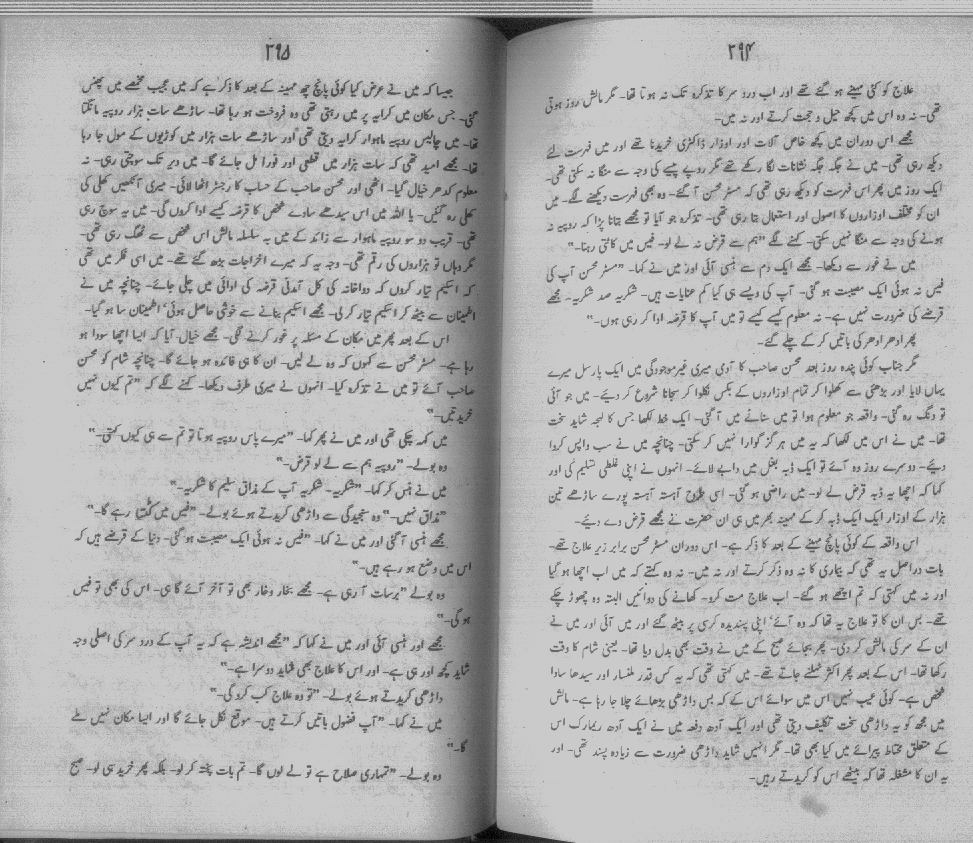 ۲۹۴
علاج کو کئی مہینے ہو گئے تھے اور اب درد سر کا تذکرہ تک نہ ہوتا تھا۔ مگر مالش روز ہوتی
تھی۔ نہ وہ اس میں کچھ حیل و حجت کرتے اور نہ میں۔
مجھے اس دوران میں کچھ خاص آلات اور اوزار ڈاکٹری خریدنا تھے اور میں فہرست لئے
دیکھ رہی تھی۔ میں نے جگہ جگہ نشانات لگا رکھے تھے مگر روپے پیسے کی وجہ سے منگا نہ سکتی تھی۔
ایک روز میں پھر اس فہرست کو دیکھ رہی تھی کہ مسٹر محسن آ گئے۔ وہ بھی فہرست دیکھنے لگے۔ میں
ان کو مختلف اوزاروں کا اصول اور استعمال بتا رہی تھی۔ تذکرہ جو آیا تو مجھے بتانا پڑا کہ روپیہ نہ
ہونے کی وجہ سے منگا نہیں سکتی۔ کہنے لگے "ہم سے قرض نہ لے لو۔ فیس میں کاٹتی رہنا۔"
میں نے غور سے دیکھا۔ مجھے ایک دم سے ہنسی آئی اور میں نے کہا۔ "مسٹر محسن آپ کی
فیس نہ ہوئی ایک مصیبت ہو گئی۔ آپ کی ویسے ہی کیا کم عنایات ہیں۔ شکریہ صد شکریہ۔ مجھے
قرضے کی ضرورت نہیں ہے۔ نہ معلوم کیسے کیسے تو میں آپ کا قرضہ ادا کر رہی ہوں۔"
پھر ادھر ادھر کی باتیں کر کے چلے گئے۔
مگر جناب کوئی پندرہ روز بعد محسن صاحب کا آدمی میری غیر موجودگی میں ایک پارسل میرے
یہاں لایا اور بڑھئی سے کھلوا کر تمام اوزاروں کے بکس نکلوا کر سجانا شروع کر دیئے۔ میں جو آئی
تو دنگ رہ گئی۔ واقعہ جو معلوم ہوا تو میں سناٹے میں آ گئی۔ ایک خط لکھا جس کا لہجہ شاید سخت
تھا۔ میں نے اس میں لکھا کہ یہ میں ہرگز گوارا نہیں کر سکتی۔ چنانچہ میں نے سب واپس کروا
دیئے۔ دوسرے روز وہ آئے تو ایک ڈبہ بغل میں دابے لائے۔ انہوں نے اپنی غلطی تسلیم کی اور
کہا کہ اچھا یہ ڈبہ قرض لے لو۔ میں راضی ہو گئی۔ اسی طرح آہستہ آہستہ پورے ساڑھے تین
ہزار کے اوزار ایک ایک ڈبہ کر کے مہینہ بھر میں ہی ان حضرت نے مجھے قرض دے دیئے۔
اس واقعہ کے کوئی پانچ مہینے کے بعد کا ذکر ہے۔ اس دوران مسٹر محسن برابر زیر علاج تھے۔
بات دراصل یہ تھی کہ بیماری کا نہ وہ ذکر کرتے اور نہ میں۔ نہ وہ کہتے کہ میں اب اچھا ہو گیا
اور نہ میں کہتی کہ تم اچھے ہو گئے۔ اب علاج مت کرو۔ کھانے کی دوائیں البتہ وہ چھوڑ چکے
تھے۔ بس ان کا تو علاج یہ تھا کہ وہ آئے' اپنی پسندیدہ کرسی پر بیٹھ گئے اور میں آئی اور میں نے
ان کے سر کی مالش کر دی۔ پھر بجائے صبح کے میں نے وقت بھی بدل دیا تھا۔ یعنی شام کا وقت
رکھا تھا۔ اس کے بعد پھر اکثر ٹہلنے جاتے تھے۔ میں کہتی تھی کہ یہ کس قدر ملنسار اور سیدھا سادا
شخص ہے۔ کوئی عیب نہیں اس میں سوائے اس کے کہ بس داڑھی بڑھائے چلا جا رہا ہے۔ مالش
میں مجھ کو یہ داڑھی سخت تکلیف دیتی تھی اور ایک آدھ دفعہ میں نے ایک آدھ ریمارک اس
کے متعلق محتاط پیرائے میں کیا بھی تھا۔ مگر انہیں شاید داڑھی ضرورت سے زیادہ پسند تھی۔ اور
یہ ان کا مشغلہ تھا کہ بیٹھے اس کو کریدتے رہیں۔
۲۹۵
جیسا کہ میں نے عرض کیا کوئی پانچ چھ مہینہ کے بعد کا ذکر ہے کہ میں عجیب مخمصے میں پھنس
گئی۔ جس مکان میں کرایہ پر میں رہتی تھی وہ فروخت ہو رہا تھا۔ ساڑھے سات ہزار روپیہ مانگتا
تھا۔ میں چالیس روپیہ ماہوار کرایہ دیتی تھی اور ساڑھے سات ہزار میں کوڑیوں کے مول جا رہا
تھا۔ مجھے امید تھی کہ سات ہزار میں قطعی اور فوراً مل جائے گا۔ میں دیر تک سوچتی رہی۔ نہ
معلوم کدھر خیال گیا۔ اٹھی اور محسن صاحب کے حساب کا رجسٹر اٹھا لائی۔ میری آنکھیں کھلی کی
کھلی رہ گئیں۔ یا اللہ میں اس سیدھے سادے شخص کا قرضہ کیسے ادا کروں گی۔ میں یہ سوچ رہی
تھی۔ قریب دو سو روپیہ ماہوار سے زائد کے میں بہ سلسلہ مالش اس شخص سے ٹھگ رہی تھی۔
مگر وہاں تو ہزاروں کی رقم تھی۔ وجہ یہ کہ میرے اخراجات بڑھ گئے تھے۔ میں اسی فکر میں تھی
کہ اسکیم تیار کروں کہ دواخانہ کی کل آمدنی قرضہ کی ادائی میں چلی جائے۔ چنانچہ میں نے
اطمینان سے بیٹھ کر اسکیم تیار کر لی۔ مجھے اسکیم بنانے سے خوشی حاصل ہوئی' اطمینان سا ہو گیا۔
اس کے بعد پھر میں مکان کے مسئلہ پر غور کرنے لگی۔ مجھے خیال آیا کہ ایسا اچھا سودا ہو
رہا ہے۔ مسٹر محسن سے کہوں کہ وہ لے لیں۔ ان کا ہی فائدہ ہو جائے گا۔ چنانچہ شام کو محسن
صاحب آئے تو میں نے تذکرہ کیا۔ انہوں نے میری طرف دیکھا۔ کہنے لگے کہ "تم کیوں نہیں
خریدتیں۔"
میں کہہ چکی تھی اور میں نے پھر کہا۔ "میرے پاس روپیہ ہوتا تو تم سے ہی کیوں کہتی۔"
وہ بولے۔ "روپیہ ہم سے لے لو قرض۔"
میں نے ہنس کر کہا۔ "شکریہ۔ شکریہ آپ کے مذاق سلیم کا شکریہ۔"
"مذاق نہیں۔" وہ سنجیدگی سے داڑھی کریدتے ہوئے بولے۔ "فیس میں کٹتا رہے گا۔"
مجھے ہنسی آ گئی اور میں نے کہا۔ "فیس نہ ہوئی ایک مصیبت ہو گئی۔ دنیا کے قرضے ہیں کہ
اس میں وضع ہو رہے ہیں۔"
وہ بولے "برسات آ رہی ہے۔ مجھے بخار وخار بھی تو آخر آئے گا ہی۔ اس کی بھی تو فیس
ہو گی۔"
مجھے اور ہنسی آئی اور میں نے کہا کہ "مجھے اندیشہ ہے کہ یہ آپ کے درد سر کی اصلی وجہ
شاید کچھ اور ہی ہے۔ اور اس کا علاج بھی شاید دوسرا ہے۔"
داڑھی کریدتے ہوئے بولے۔ "تو وہ علاج کب کرو گی۔"
میں نے کہا۔ "آپ فضول باتیں کرتے ہیں۔ موقع نکل جائے گا اور ایسا مکان نہیں ملے
گا۔"
وہ بولے۔ "تمہاری صلاح ہے تو لے لوں گا۔ تم بات پختہ کر لو۔ بلکہ پھر خرید ہی لو۔ صبح